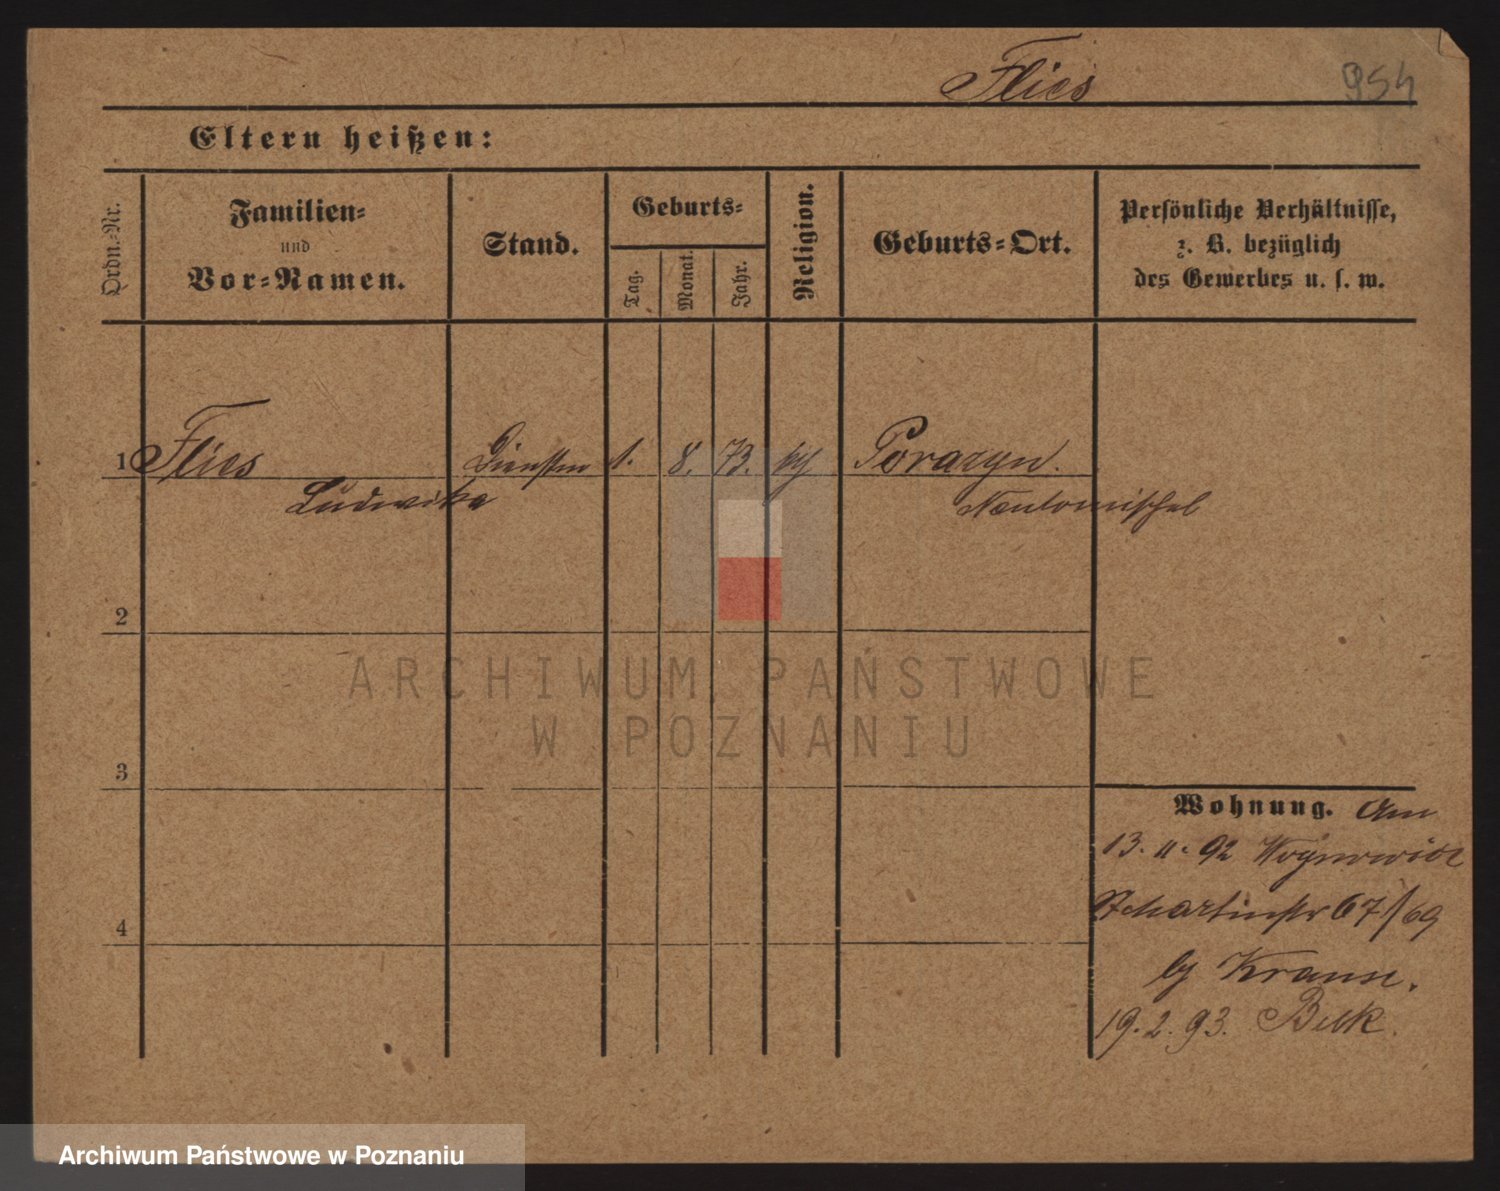 Flies
954
Eltern heißen:
Ordn.-Nr.
Familien-
und
Vor-Namen.
Stand.
Geburts-
Tag.
Monat.
Jahr.
Religion.
Geburts-Ort.
Persönliche Verhältnisse,
z. B. bezüglich
des Gewerbes u. s. w.
1 Flies
Ludwika
1. 8. 73.
Porazyn.
Neutomischel
2
3
4
Wohnung. Am
13. 11. 92
67/69
Krause.
19. 2. 93.
ARCHIWUM PAŃSTWOWE
W POZNANIU
Archiwum Państwowe w Poznaniu